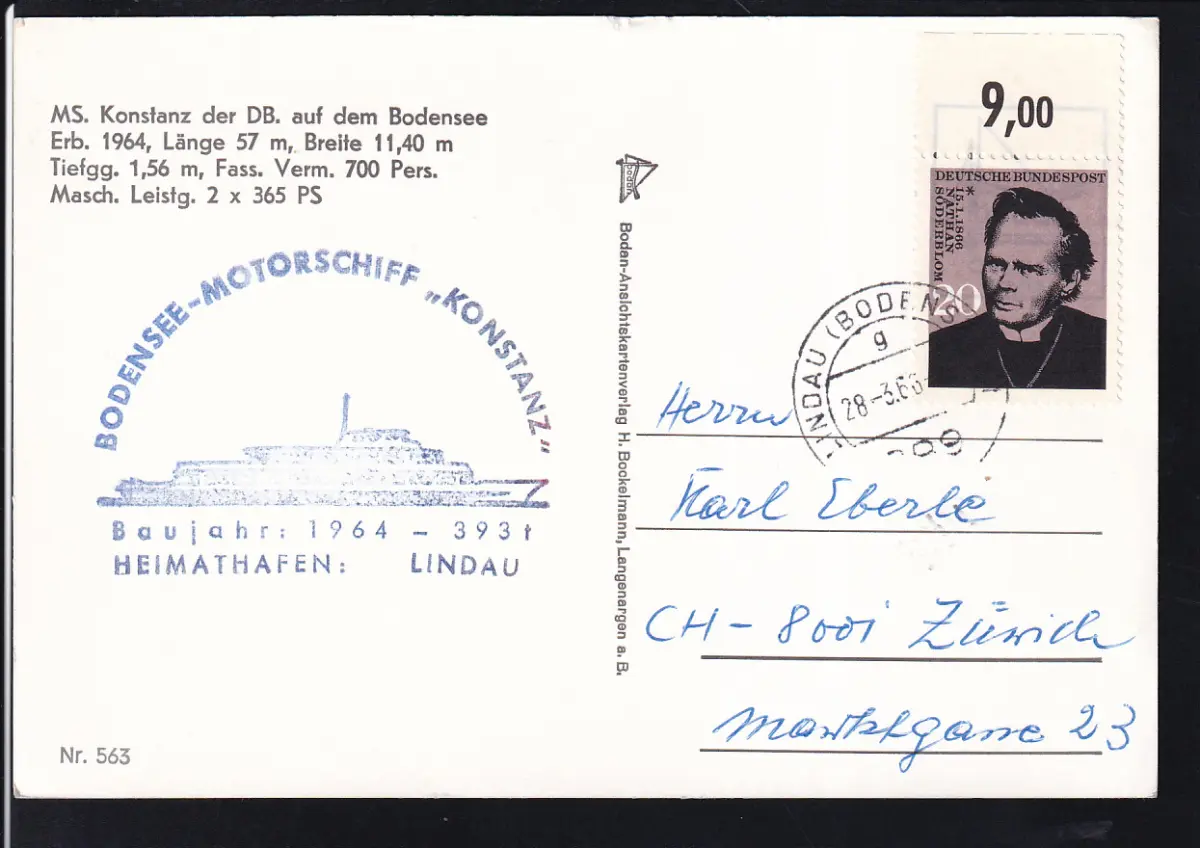 MS. Konstanz der DB. auf dem Bodensee
Erb. 1964, Länge 57 m, Breite 11,40 m
Tiefgg. 1,56 m, Fass. Verm. 700 Pers.
Masch. Leistg. 2 x 365 PS
BODENSEE-MOTORSCHIFF „KONSTANZ“
Baujahr: 1964 – 393t
HEIMATHAFEN: LINDAU
Nr. 563
bodan
Bodan-Ansichtskartenverlag H. Bockelmann, Langenargen a. B.
9,00
DEUTSCHE BUNDESPOST
*
15.1.1866
NATHAN
SÖDERBLOM
20
LINDAU (BODENS
g
28-3.66
Herrn
Karl Eberle
CH - 8001 Zürich
Marktgasse 23